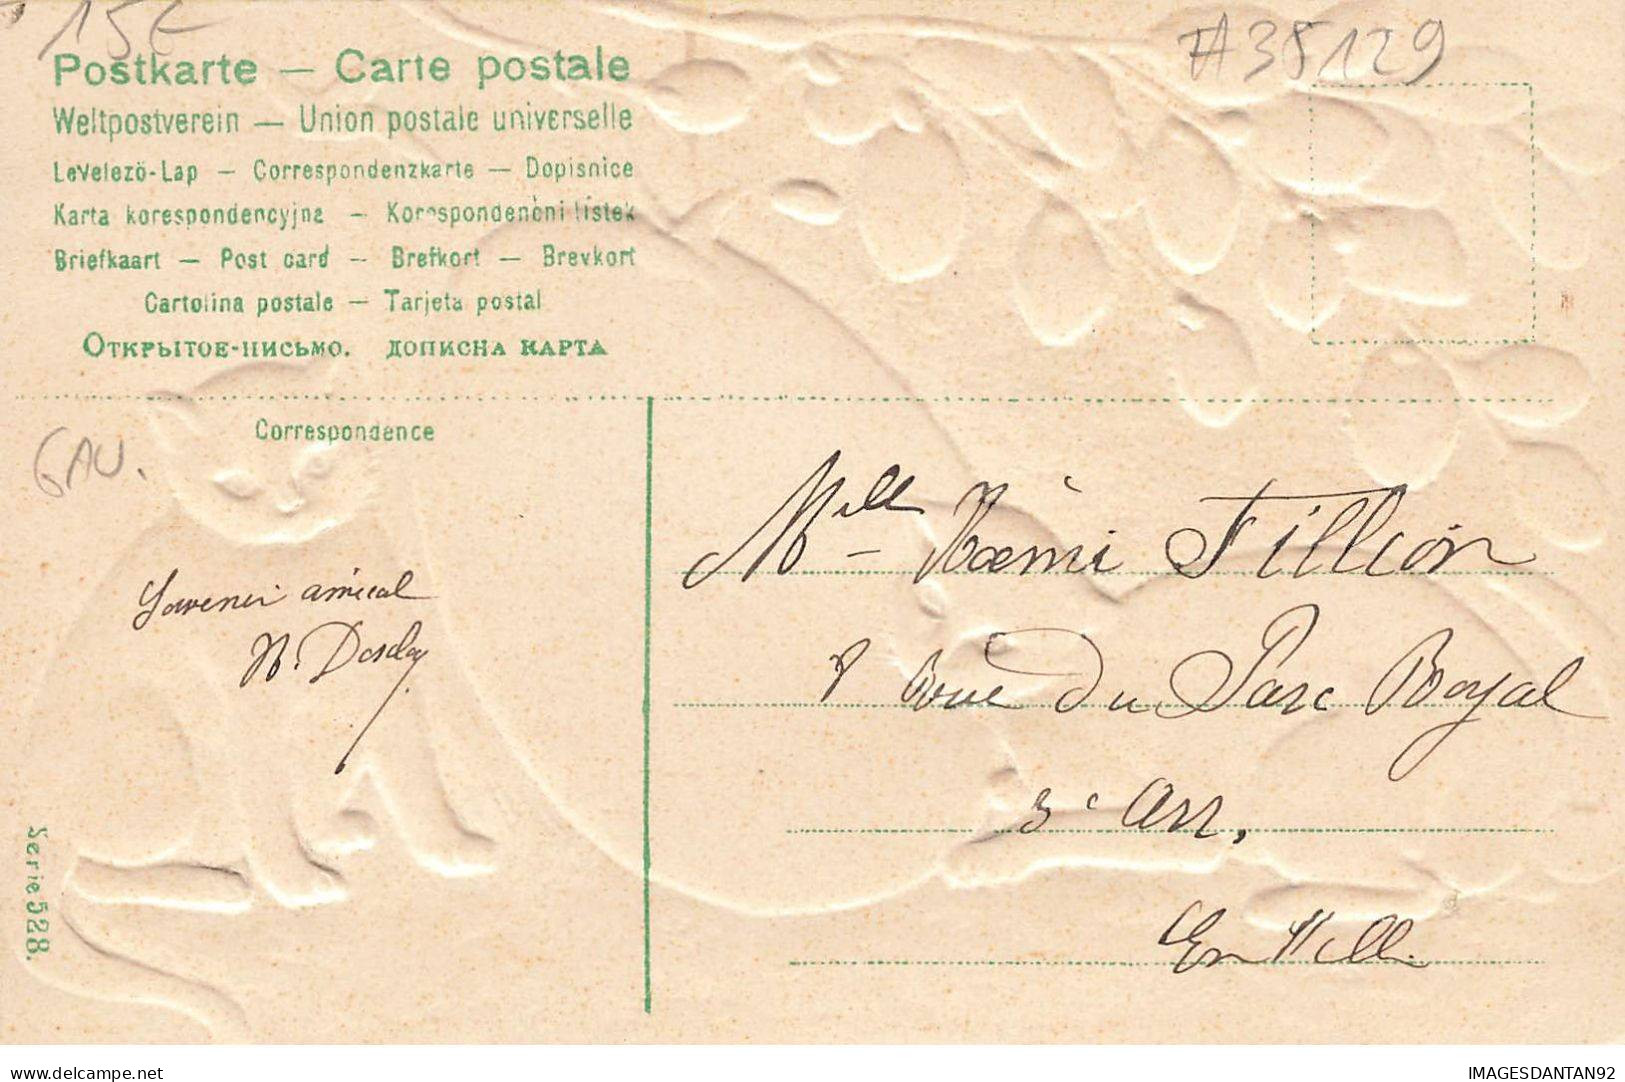 15€
#35129
Postkarte — Carte postale
Weltpostverein — Union postale universelle
Levelező-Lap — Correspondenzkarte — Dopisnice
Karta korespondencyjna — Korespondenčni listek
Briefkaart — Post card — Brefkort — Brevkort
Cartolina postale — Tarjeta postal
Открытое-письмо. дописна карта
Correspondence
GAU.
Souvenir amical
Serie 528.
Mlle Noëmi Fillion
8 Rue du Parc Royal
3e Arr,
En Ville
delcampe.net
IMAGESDANTAN92